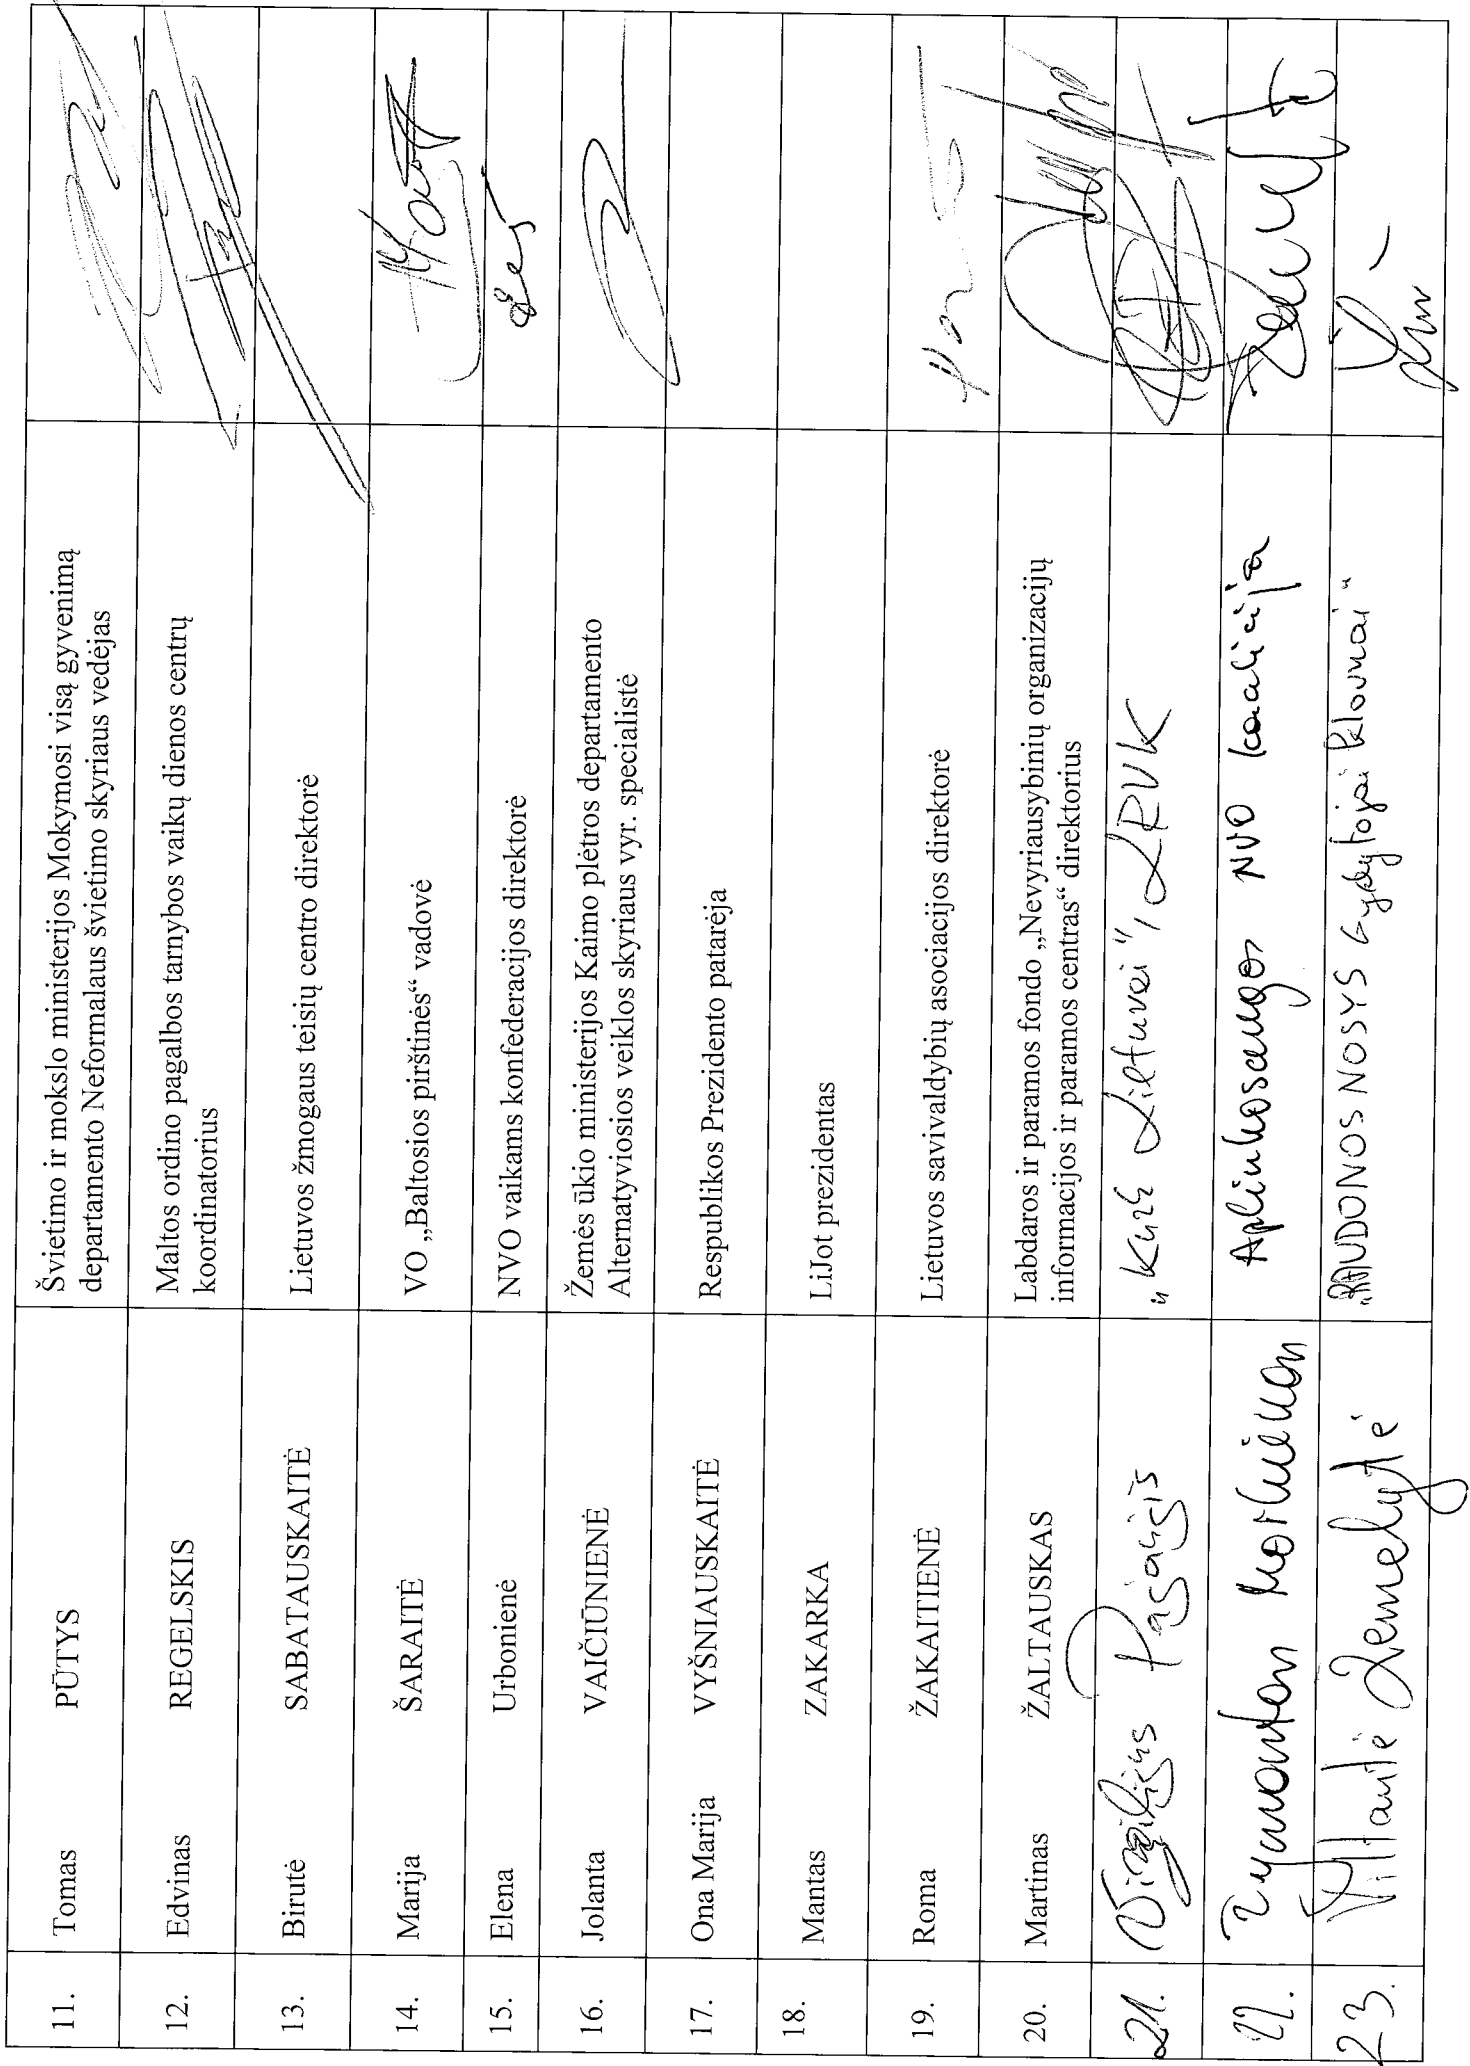 11. Tomas PŪTYS Švietimo ir mokslo ministerijos Mokymosi visą gyvenimą
departamento Neformalaus švietimo skyriaus vedėjas
12. Edvinas REGELSKIS Maltos ordino pagalbos tarnybos vaikų dienos centrų
koordinatorius
13. Birutė SABATAUSKAITĖ Lietuvos žmogaus teisių centro direktorė
14. Marija ŠARAITĖ VO „Baltosios pirštinės“ vadovė
15. Elena Urbonienė NVO vaikams konfederacijos direktorė
16. Jolanta VAIČIŪNIENĖ Žemės ūkio ministerijos Kaimo plėtros departamento
Alternatyviosios veiklos skyriaus vyr. specialistė
17. Ona Marija VYŠNIAUSKAITĖ Respublikos Prezidento patarėja
18. Mantas ZAKARKA LiJot prezidentas
19. Roma ŽAKAITIENĖ Lietuvos savivaldybių asociacijos direktorė
20. Martinas ŽALTAUSKAS Labdaros ir paramos fondo „Nevyriausybinių organizacijų
informacijos ir paramos centras“ direktorius
21. "Kurk Lietuvai", LRVK
22. Aplinkosaugos NVO koalicija
23. Viltautė Žemelytė „RAUDONOS NOSYS Gydytojai klounai“